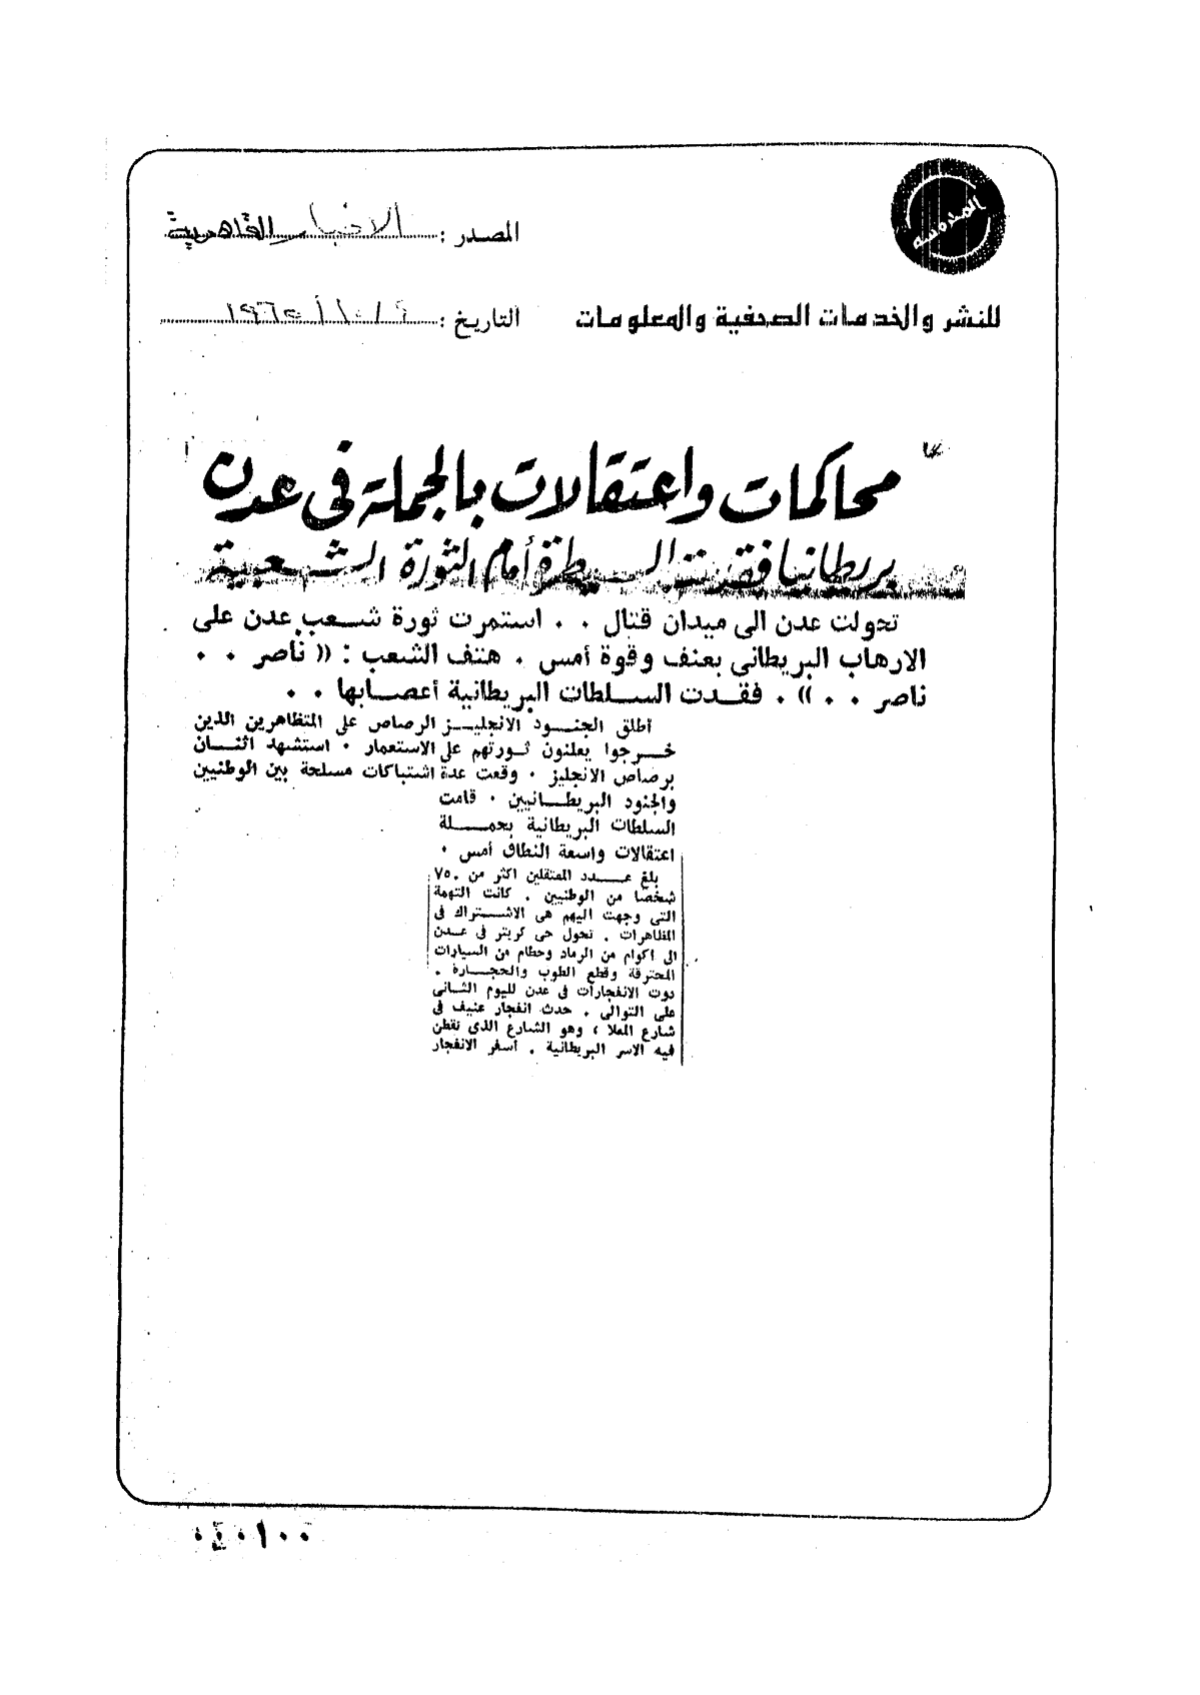 المصدر : الاخبار القاهرية
للنشر والخدمات الصحفية والمعلومات
التاريخ : ١٩٦٥
محاكمات واعتقالات بالجملة فى عدن
بريطانيا فقدت السيطرة أمام الثورة الشعبية
تحولت عدن الى ميدان قتال . . استمرت ثورة شعب عدن على
الارهاب البريطانى بعنف وقوة أمس . هتف الشعب : (( ناصر . .
ناصر . . )) . فقدت السلطات البريطانية أعصابها . .
أطلق الجنود الانجليز الرصاص على المتظاهرين الذين
خرجوا يعلنون ثورتهم على الاستعمار . استشهد اثنان
برصاص الانجليز . وقعت عدة اشتباكات مسلحة بين الوطنيين
والجنود البريطانيين . قامت
السلطات البريطانية بحملة
اعتقالات واسعة النطاق أمس .
بلغ عدد المعتقلين اكثر من ٧٥٠
شخصا من الوطنيين . كانت التهمة
التى وجهت اليهم هى الاشتراك فى
المظاهرات . تحول حى كريتر فى عدن
الى اكوام من الرماد وحطام من السيارات
المحترقة وقطع الطوب والحجارة .
دوت الانفجارات فى عدن لليوم الثانى
على التوالى . حدث انفجار عنيف فى
شارع المعلا ، وهو الشارع الذى تقطن
فيه الاسر البريطانية . أسفر الانفجار